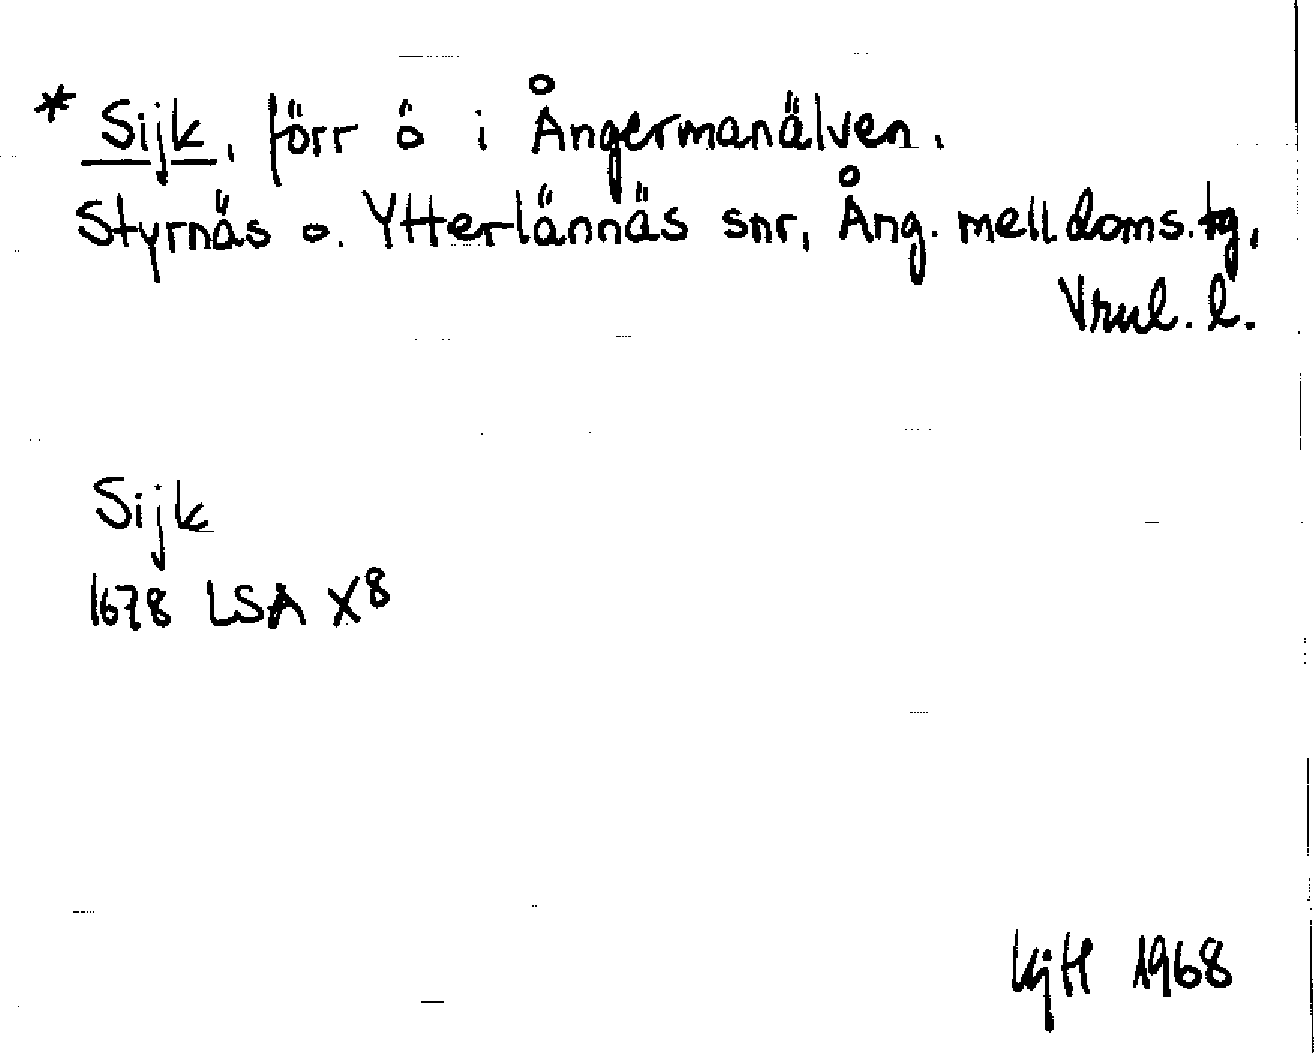 * Sijk, förr ö i Ångermanälven.
Styrnäs o. Ytterlännäs snr, Ång. mell doms. tg,
Vrnl. l.
Sijk
1678 LSA X8
KjH 1968